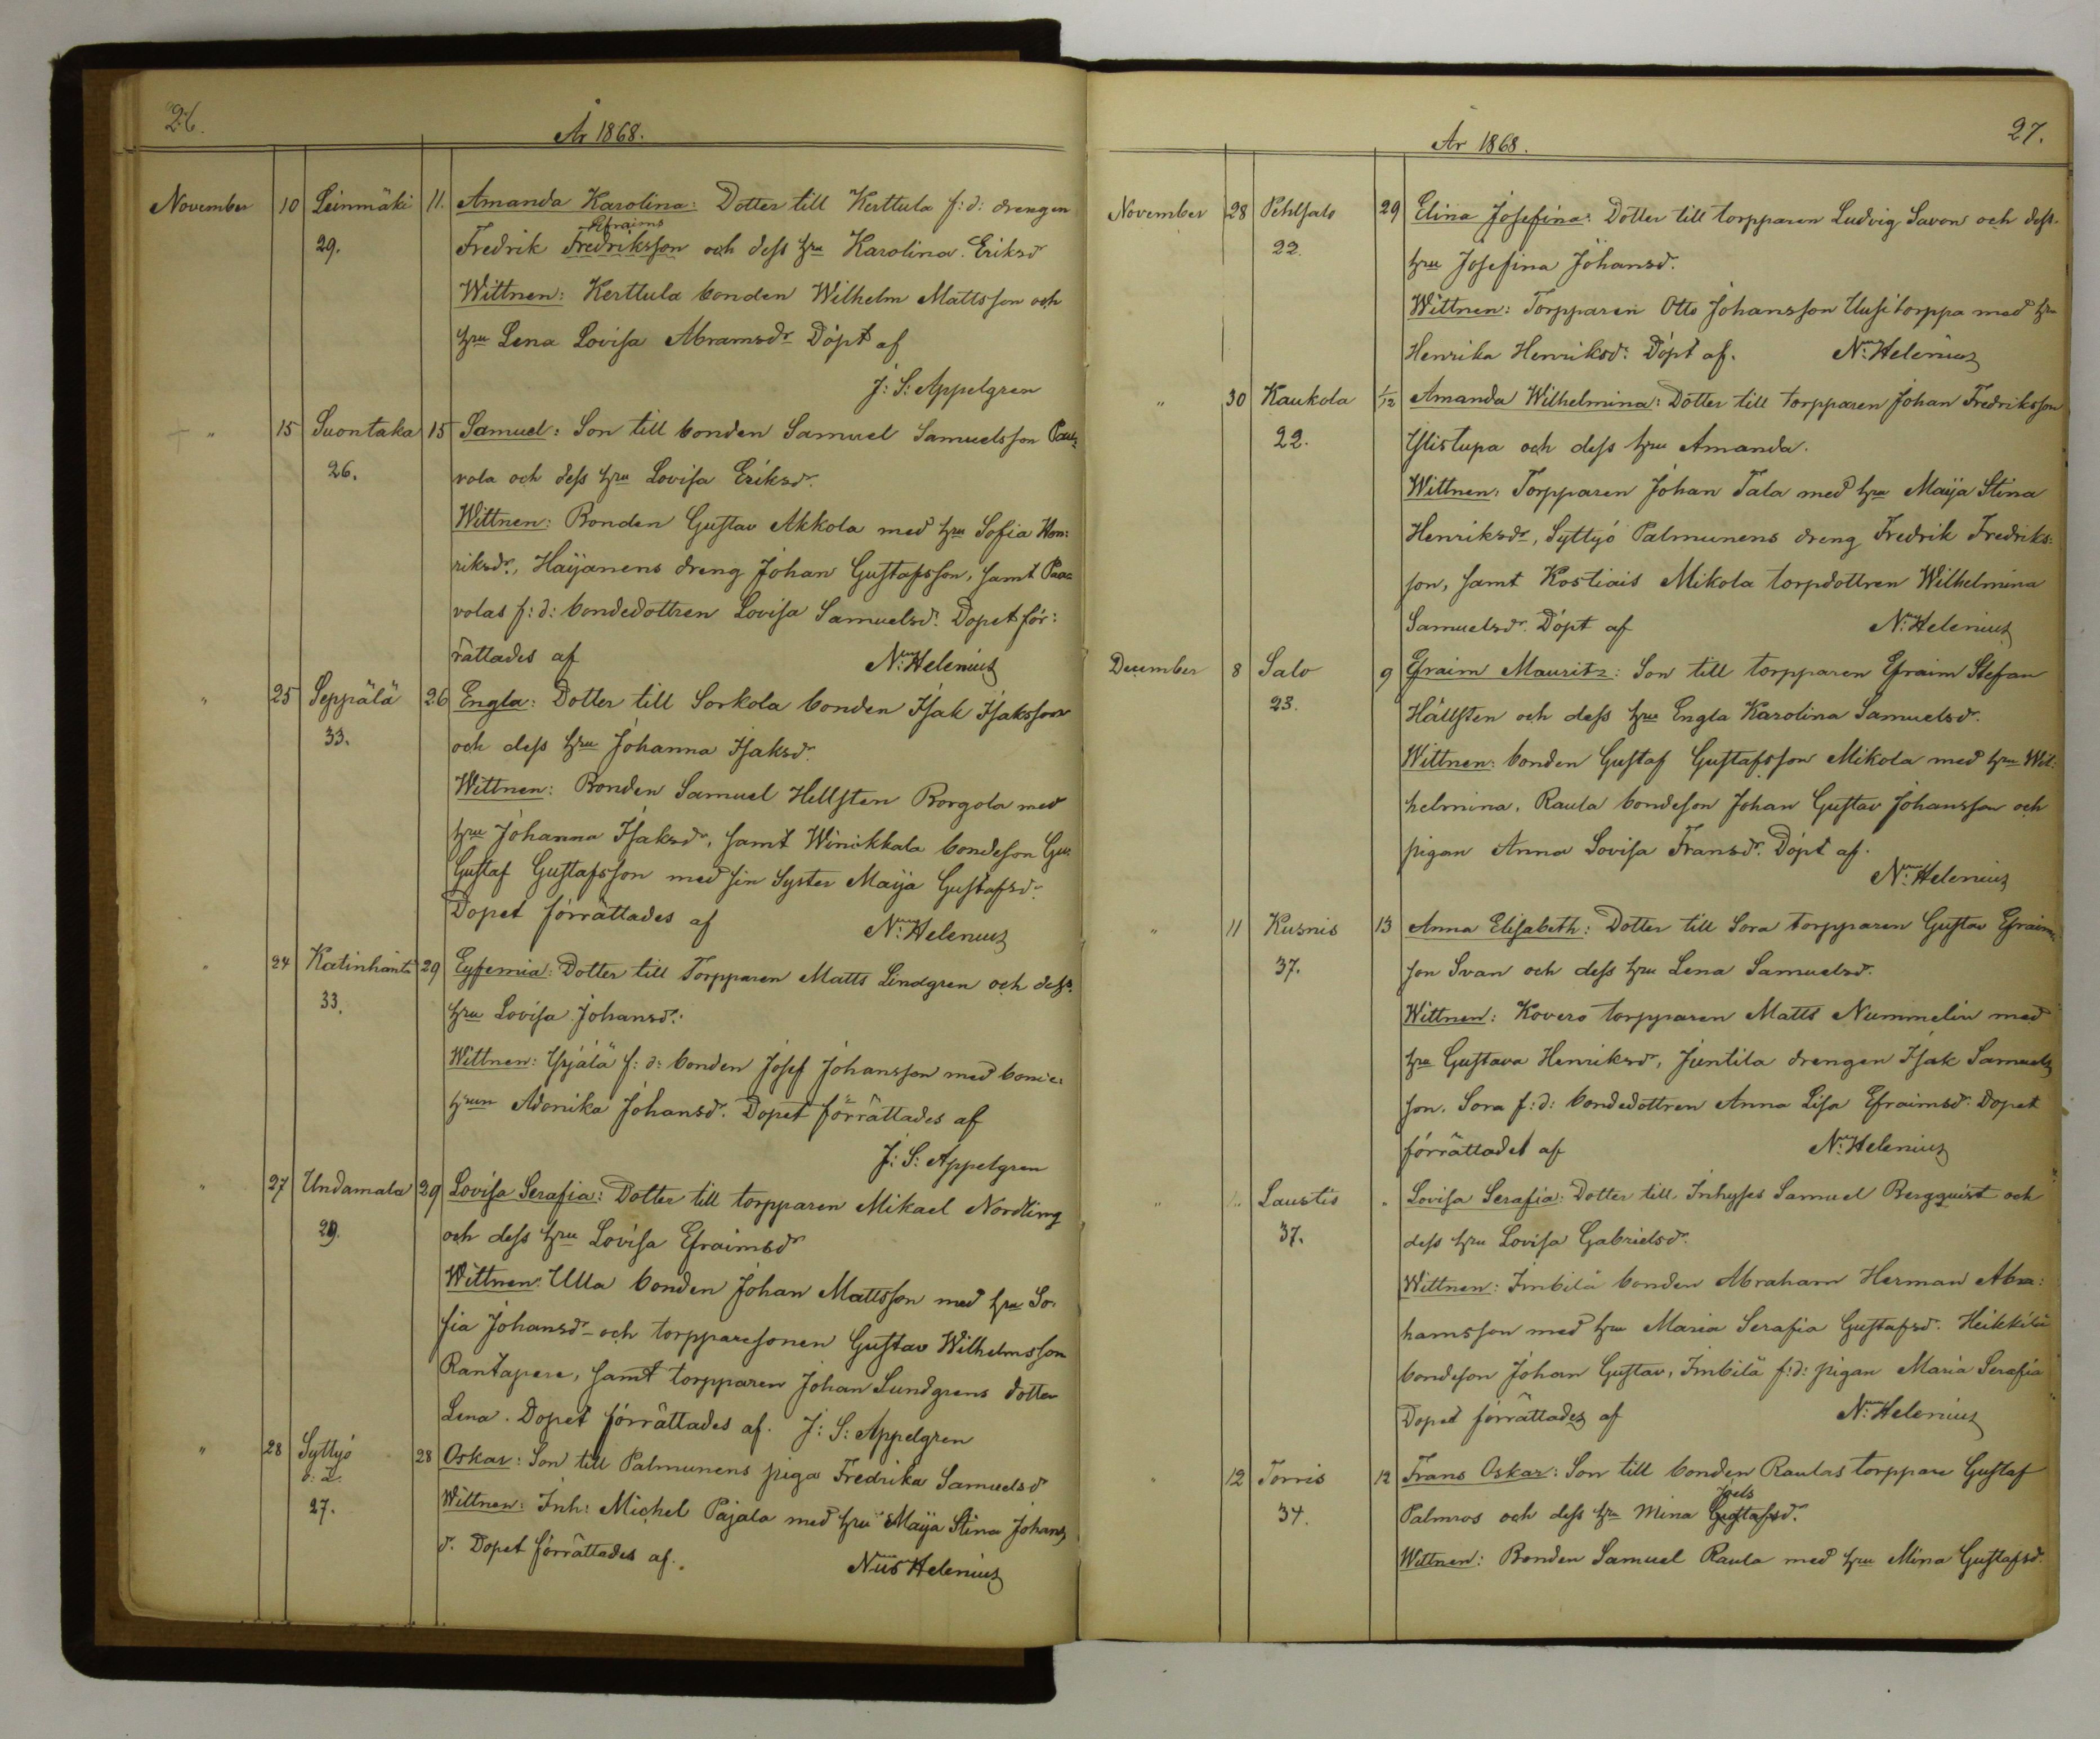 26.
År 1868.
November 10 Leinmäki 11. Amanda Karolina: Dotter till Kerttula f:d: drengen
Efraims
29. Fredrik Fredriksson och dess hru Karolina Eriksdr
Wittnen: Kerttula bonden Wilhelm Mattsson och
hru Lena Lovisa Abramsdr Döpt af
J: S: Appelgren
" 15 Suontaka 15 Samuel: Son till bonden Samuel Samuelsson Paa:
26. vola och dess hru Lovisa Eriksdr.
Wittnen: Bonden Gustav Akkola med hru Sofia Hen:
riksdr., Haijanens dreng Johan Gustafsson, samt Paa:
volas f:d: bondedottren Lovisa Samuelsdr. Dopet för:
rättades af Nus Helenius
" 25 Seppälä 26 Engla: Dotter till Sorkola bonden Isak Isaksson
33. och dess hru Johanna Isaksdr.
Wittnen: Bonden Samuel Hellsten Borgola med
hru Johanna Isaksdr, samt Winikkala bondeson Gu:
Gustaf Gustafsson med sin Syster Maija Gustafsdr.
Dopet förrättades af Nus Helenius
" 24 Katinhänta 29 Eyfemia: Dotter till Torpparen Matts Lindgren och dess
33. hru Lovisa Johansdr.
Wittnen: Yrjälä f:d: bonden Josef Johansson med bonde:
hrun Adonika Johansdr. Dopet förrättades af
J: S: Appelgren
" 27 Undamala 29 Lovisa Serafia: Dotter till torpparen Mikael Nordling
29. och dess hru Lovisa Efraimsdr
Wittnen: Ulla bonden Johan Mattsson med hru So:
fia Johansdr och torpparesonen Gustav Wilhelmsson
Rantapere, samt torpparen Johan Sundgrens dotter
Lena. Dopet förrättades af. J: S: Appelgren
" 28 Syttyö 28 Oskar: Son till Palmunens piga Fredrika Samuelsdr
o: ä.
27. Wittnen: Inh: Michel Pajala med hru Maija Stina Johans
dr. Dopet förrättades af. Nus Helenius
27.
År 1868.
November 28 Pehlsalo 29 Elina Josefina: Dotter till torpparen Ludvig Savon och dess
22. hru Josefina Johansdr.
Wittnen: Torpparen Otto Johansson Uusitorppa med hru
Henrika Henriksdr. Döpt af. Nus Helenius
" 30 Kaukola 1/12 Amanda Wilhelmina: Dotter till torpparen Johan Fredriksson
22. Ylistupa och dess hru Amanda.
Wittnen: Torpparen Johan Tala med hru Maija Stina
Henriksdr, Syttyö Palmunens dreng Fredrik Fredriks:
son, samt Kostiais Mikola torpdottren Wilhelmina
Samuelsdr. Döpt af Nus Helenius
December 8 Salo 9 Efraim Mauritz: Son till torpparen Efraim Stefan
23. Hällsten och dess hru Engla Karolina Samuelsdr.
Wittnen: bonden Gustaf Gustafsson Mikola med hru Wil:
helmina, Raula bondeson Johan Gustav Johansson och
pigan Anna Lovisa Fransdr. Döpt af.
Nus Helenius
" 11 Kusnis 13 Anna Elisabeth: Dotter till Sora torpparen Gustav Efraims
37. son Svan och dess hru Lena Samuelsdr.
Wittnen: Kovero torpparen Matts Nummelin med
hru Gustava Henriksdr, Juntila drengen Isak Samuels
son, Sora f:d: bondedottren Anna Lisa Efraimsdr. Dopet
förrättades af Nus Helenius
" Laustis " Lovisa Serafia: Dotter till Inhyses Samuel Bergquist och
37. dess hru Lovisa Gabrielsdr.
Wittnen: Imbilä bonden Abraham Herman Abra:
hamsson med hru Maria Serafia Gustafsdr. Heikkilä
bondeson Johan Gustav, Imbilä f:d: pigan Maria Serafia
Dopet förrättades af Nus Helenius
" 12 Torris 12 Frans Oskar: Son till bonden Raulas torppare Gustaf
Joels
34. Palmros och dess hru Mina Gustafsdr.
Wittnen: Bonden Samuel Raula med hru Mina Gustafsdr.